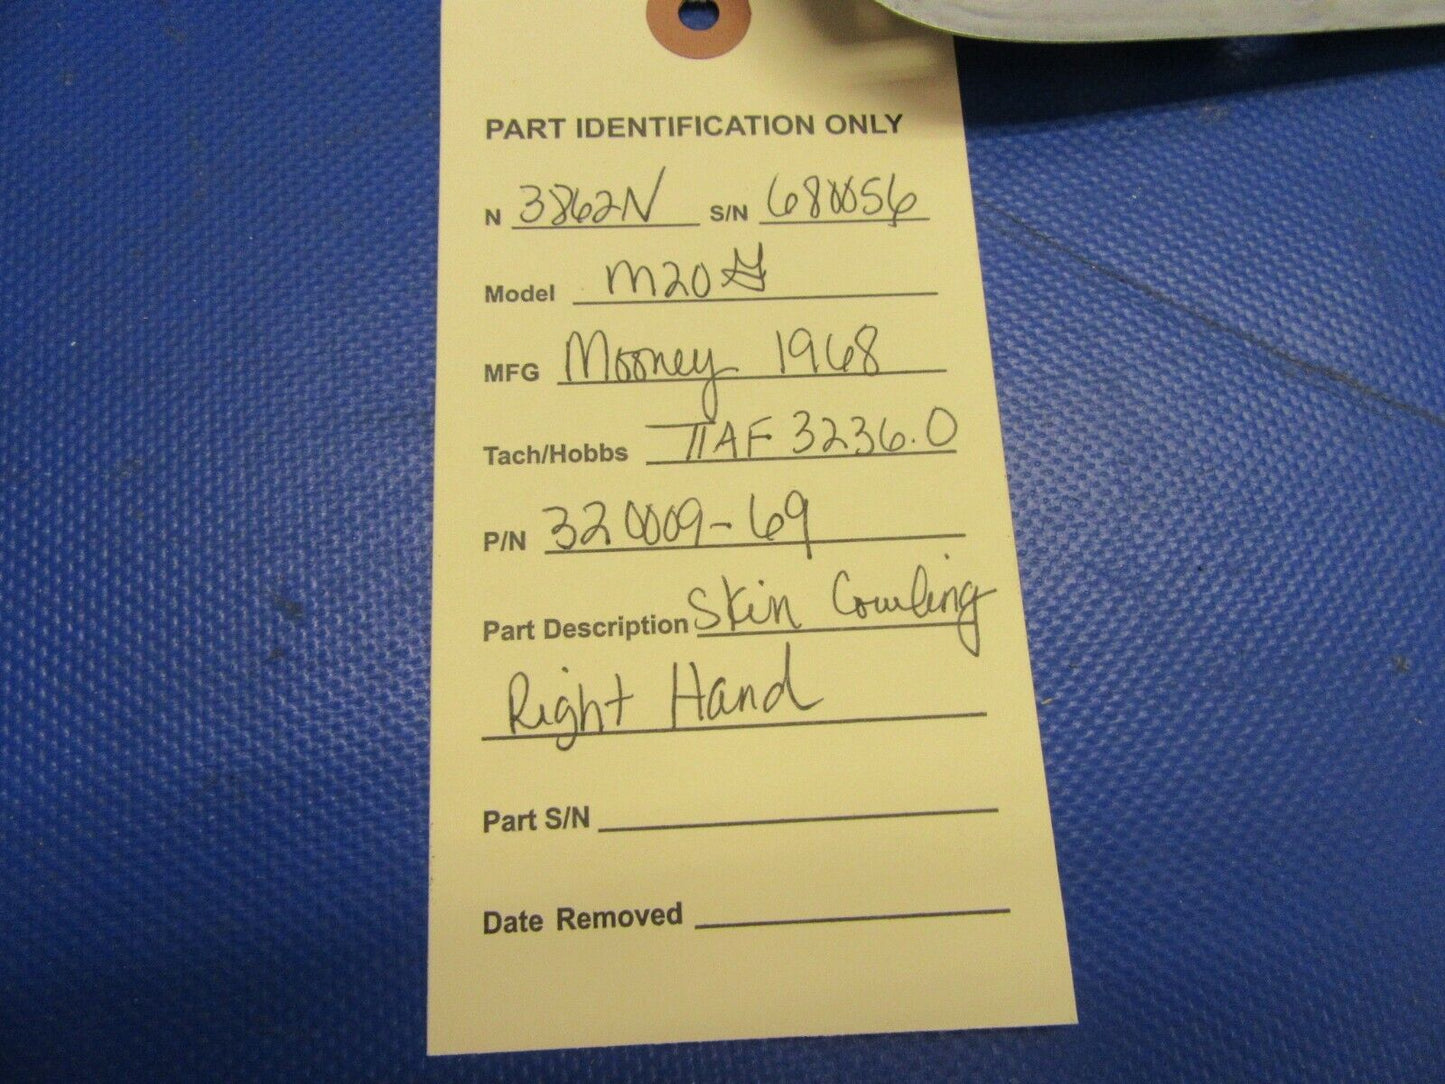 PART IDENTIFICATION ONLY
N 3862N S/N 680056
Model M20G
MFG Mooney 1968
Tach/Hobbs TTAF 3236.0
P/N 320009-69
Part Description Skin Cowling
Right Hand
Part S/N
Date Removed